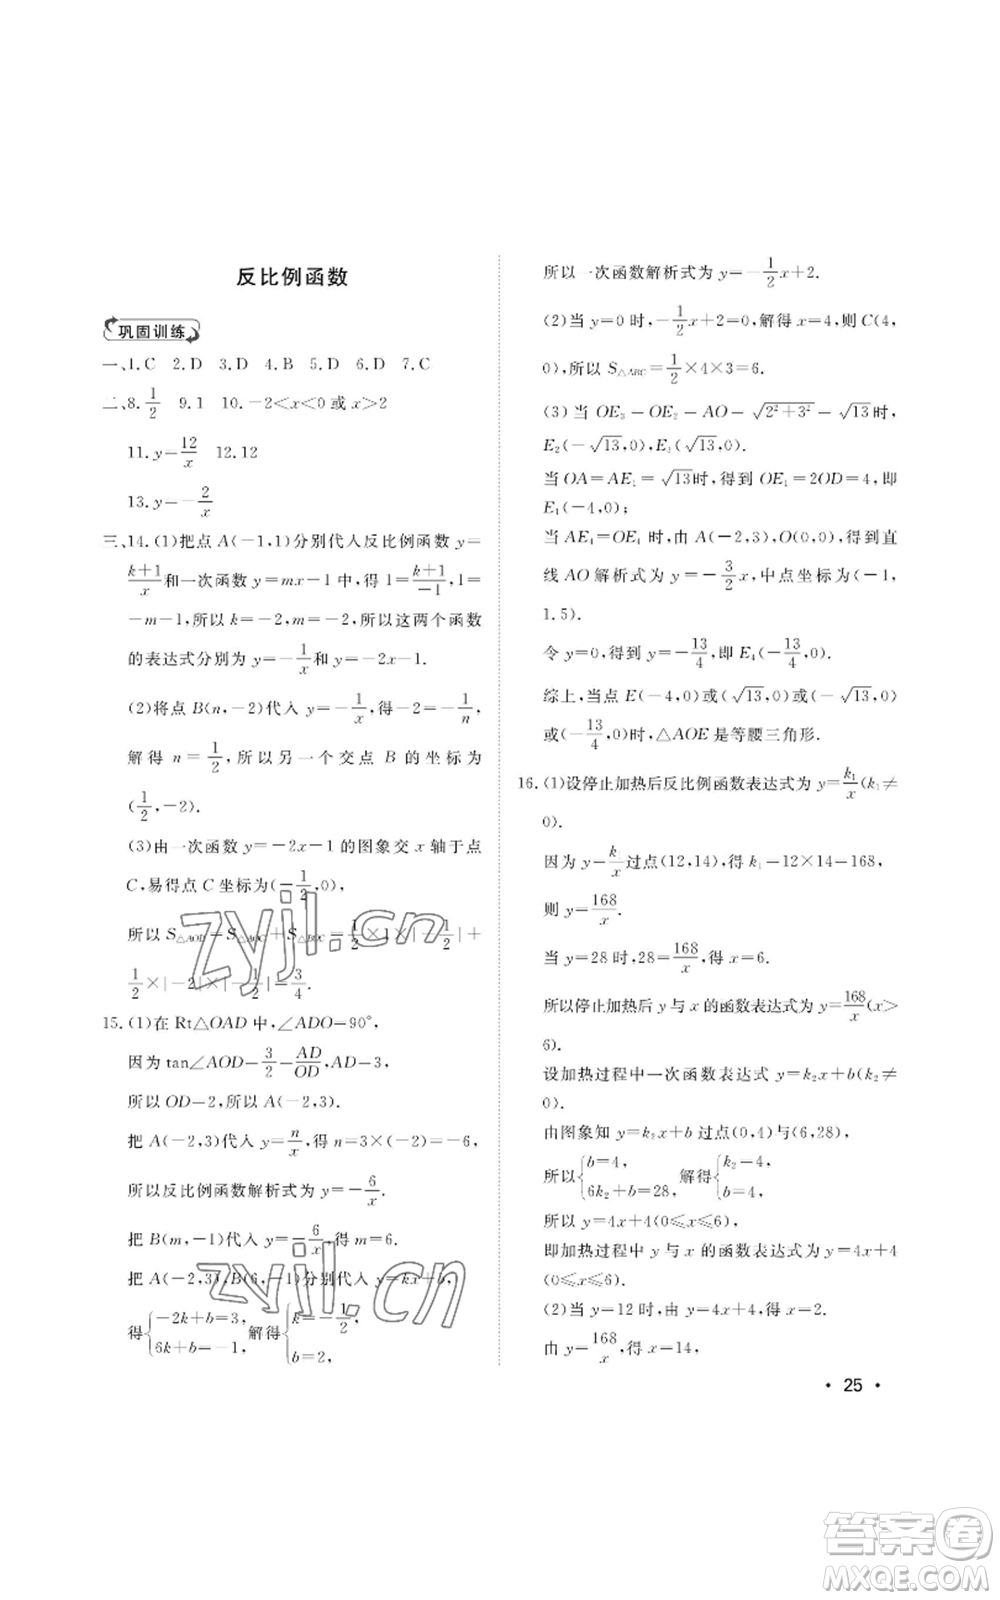 反比例函数
巩固训练
一、1.C 2.D 3.D 4.B 5.D 6.D 7.C
二、8.1/2 9.1 10.-2<x<0或x>2
11.y=12/x 12.12
13.y=-2/x
三、14.(1)把点A(-1,1)分别代人反比例函数y=
(k+1)/x和一次函数y=mx-1中,得1=(k+1)/-1,1=
-m-1,所以k=-2,m=-2,所以这两个函数
的表达式分别为y=-1/x和y=-2x-1.
(2)将点B(n,-2)代入y=-1/x,得-2=-1/n,
解得n=1/2,所以另一个交点B的坐标为
(1/2,-2).
(3)由一次函数y=-2x-1的图象交x轴于点
C,易得点C坐标为(-1/2,0),
所以S△AOD=S△AOC+S△BOC=1/2×1×|-1/2|+
1/2×|-2|×|-1/2|=3/4.
15.(1)在Rt△OAD中,∠ADO=90°,
因为tan∠AOD=3/2=AD/OD,AD=3,
所以OD=2,所以A(-2,3).
把A(-2,3)代入y=n/x,得n=3×(-2)=-6,
所以反比例函数解析式为y=-6/x.
把B(m,-1)代入y=-6/x,得m=6.
把A(-2,3),B(6,-1)分别代入y=kx+b,
得{-2k+b=3, 6k+b=-1, 解得{k=-1/2, b=2,
所以一次函数解析式为y=-1/2x+2.
(2)当y=0时,-1/2x+2=0,解得x=4,则C(4,
0),所以S△ABC=1/2×4×3=6.
(3)当OE3=OE2=AO=√(2²+3²)=√13时,
E2(-√13,0),E3(√13,0).
当OA=AE1=√13时,得到OE1=2OD=4,即
E1(-4,0);
当AE4=OE4时,由A(-2,3),O(0,0)得到直
线AO解析式为y=-3/2x,中点坐标为(-1,
1.5).
令y=0,得到y=-13/4,即E4(-13/4,0).
综上,当点E(-4,0)或(√13,0)或(-√13,0)
或(-13/4,0)时,△AOE是等腰三角形.
16.(1)设停止加热后反比例函数表达式为y=k1/x(k1≠
0).
因为y=k1/x过点(12,14),得k1=12×14=168,
则y=168/x.
当y=28时,28=168/x,得x=6.
所以停止加热后y与x的函数表达式为y=168/x(x>
6).
设加热过程中一次函数表达式y=k2x+b(k2≠
0).
由图象知y=k2x+b过点(0,4)与(6,28),
所以{b=4, 6k2+b=28, 解得{k2=4, b=4,
所以y=4x+4(0≤x≤6),
即加热过程中y与x的函数表达式为y=4x+4
(0≤x≤6).
(2)当y=12时,由y=4x+4,得x=2.
由y=168/x,得x=14,
• 25 •
zyjl.cn
zyjl.cn
答案卷
MXQE.COM